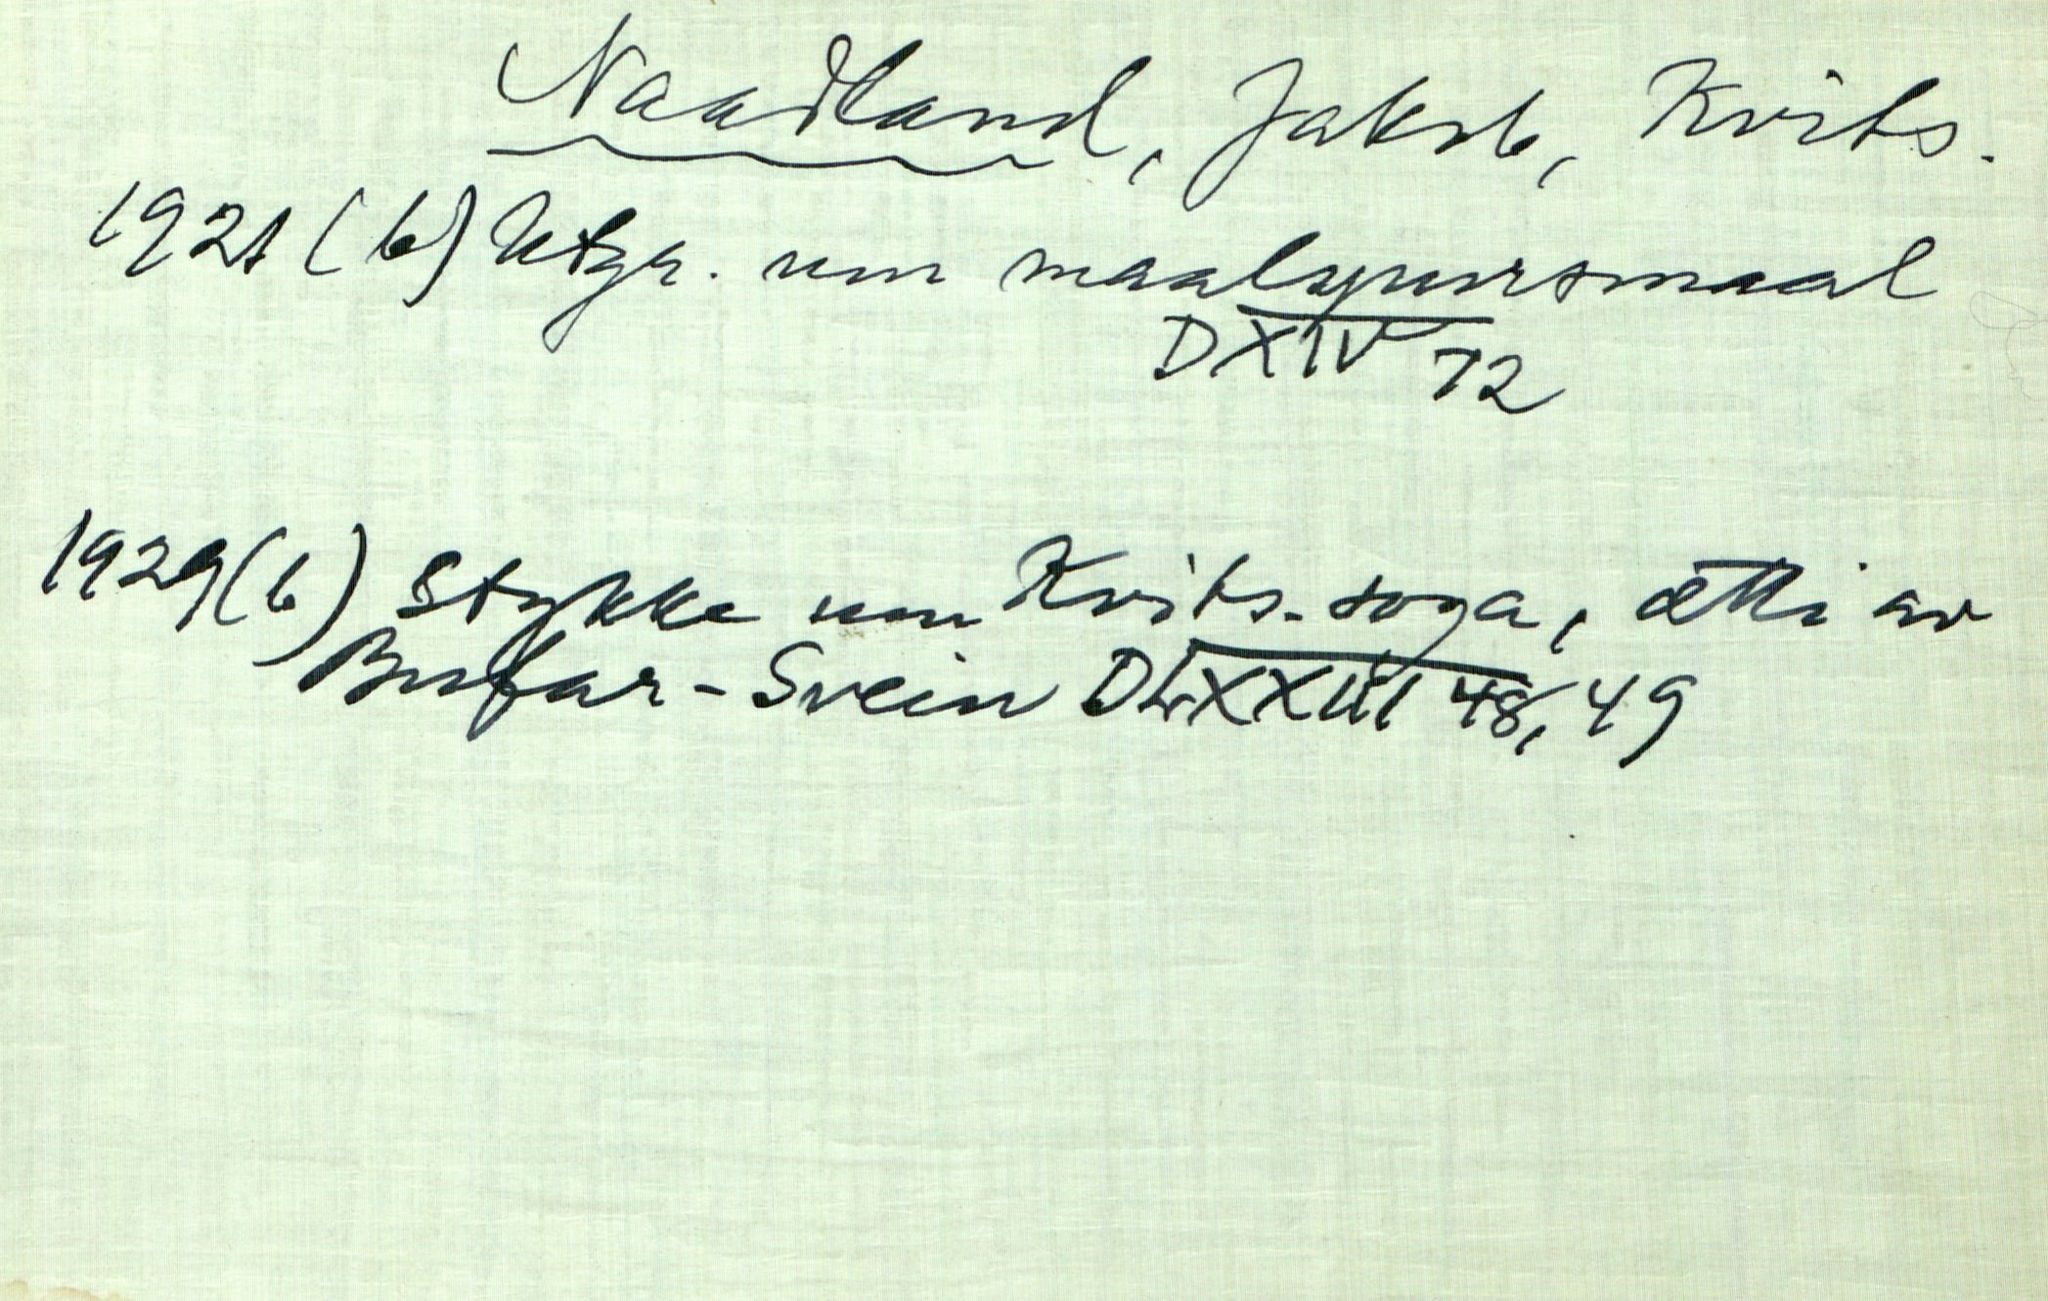 Naadland, Jakob, Kvits.
1921 (b) Utgr. um maalspursmaal
DXIV 72
1929 (b) Stykke um Kvits. soga, ætti av
Bufar-Svein DLXXIII 48, 49